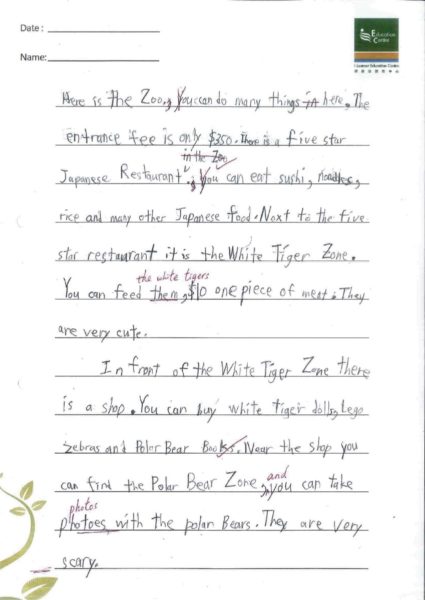 Date :
Education
Centre
i-Learner Education Centre
Name:
Here is the Zoo., You can do many things in here. The
entrance fee is only $350. There is a five star
in the Zoo
Japanese Restaurant. You can eat sushi, noodles,
rice and many other Japanese food. Next to the five
star restaurant it is the White Tiger Zone.
the white tigers
You can feed them, $10 one piece of meat. They
are very cute.
In front of the White Tiger Zone there
is a shop. You can buy white tiger dolls, Lego
zebras and Polar Bear Books. Near the shop you
can find the Polar Bear Zone, and you can take
photos
photoes with the polar Bears. They are very
scary.